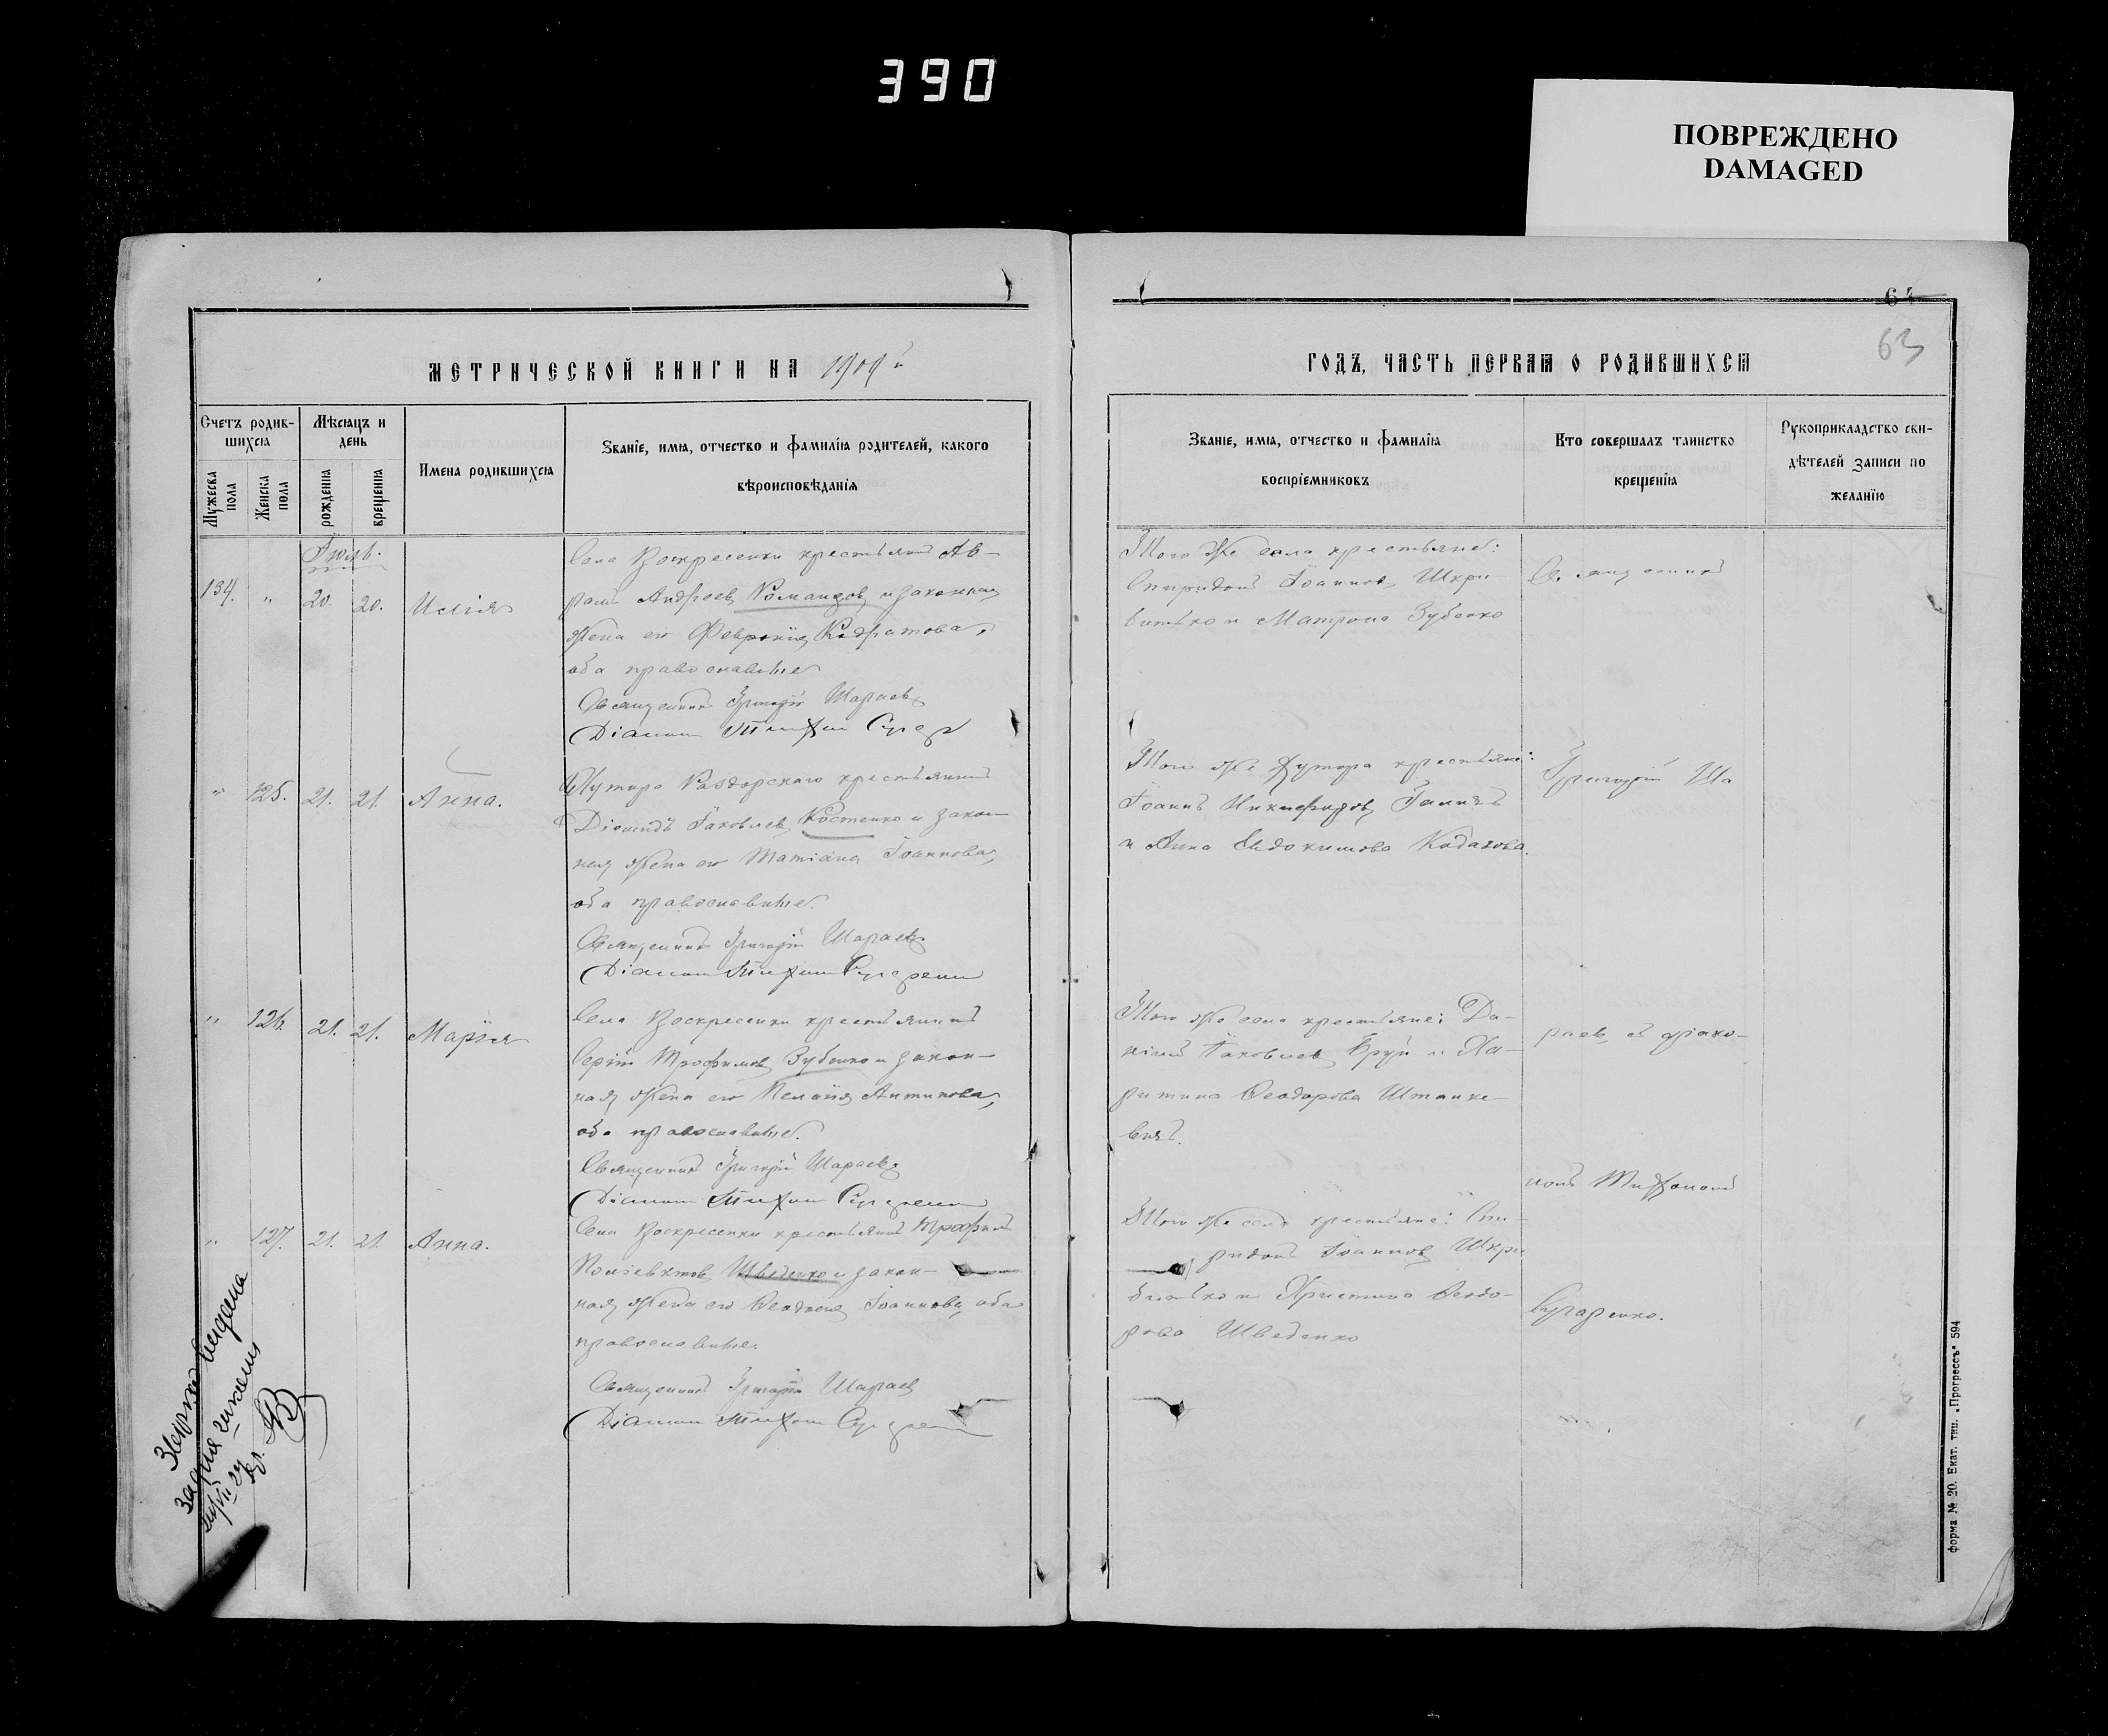 390
ПОВРЕЖДЕНО
DAMAGED
64
63
МЕТРИЧЕСКОЙ КНИГИ НА 1909й
ГОДЪ, ЧАСТЬ ПЕРВАЯ О РОДИВШИХСЯ
Счетъ родив-
шихся
Мужеска пола
Женска пола
Мѣсяцъ и
день
рожденія
крещенія
Имена родившихся
Званіе, имя, отчество и фамилія родителей, какого
вѣроисповѣданія
Званіе, имя, отчество и фамилія
воспріемниковъ
Кто совершалъ таинство
крещенія
Рукоприкладство сви-
дѣтелей записи по
желанію
Іюль.
134. " 20. 20. Илія
Села Воскресенки крестьянинъ Ав-
рамъ Андреевъ Романцовъ и законная
жена его Февронія Кодратова,
оба православные
Священникъ Григорій Шараевъ
Діаконъ Тихон
Того же села крестьяне:
Спиридонъ Іоанновъ Шкри-
битько и Матрона Зубенко
Священникъ
" 125. 21. 21. Анна.
Хутора Раздорского крестьянинъ
Діомидъ Іаковлевъ Костенко и закон
ная жена его Татіана Іоаннова,
оба православные.
Священникъ Григорій Шараевъ
Діаконъ Тихон
Того же хутора крестьяне:
Іоаннъ Никифоровъ
и Анна Евдокимова
Григорій Ша
" 126. 21. 21. Марія
Села Воскресенки крестьянинъ
Сергій Трофимовъ Зубенко и закон-
ная жена его Пелагія Антипова,
оба православные.
Священникъ Григорій Шараевъ
Діаконъ Тихон
Того же села крестьяне: Да-
ніилъ Іаковлевъ Бруй и Ха-
ритина Феодорова Штанке-
вичъ.
раевъ съ діако-
номъ Тихономъ
" 127. 21. 21. Анна.
Села Воскресенки крестьянинъ Трофимъ
Поліевктовъ Шведенко и закон-
ная жена его Феодосія Іоаннова, оба
православные.
Священникъ Григорій Шараевъ
Діаконъ Тихон
Того же села крестьяне: Спи-
ридонъ Іоанновъ Шкри
битько и Христина Феодо-
рова Шведенко
Сударенко.
форма № 20. Екат. тип. „Прогрессъ“ 594